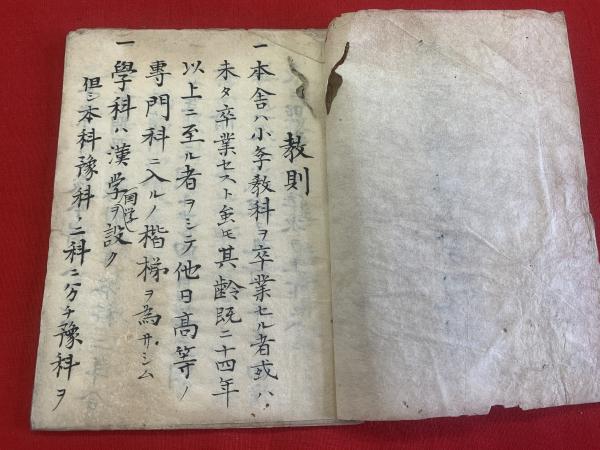 教則
一本舎ハ小学教科ヲ卒業セル者或ハ
未タ卒業セスト虽モ其齢既ニ十四年
以上ニ至ル者ヲシテ他日高等ノ
専門科ニ入ルノ楷梯ヲ為サシム
一學科ハ漢学国学ヲ設ク
但シ本科豫科ノ二科ニ分チ豫科ヲ